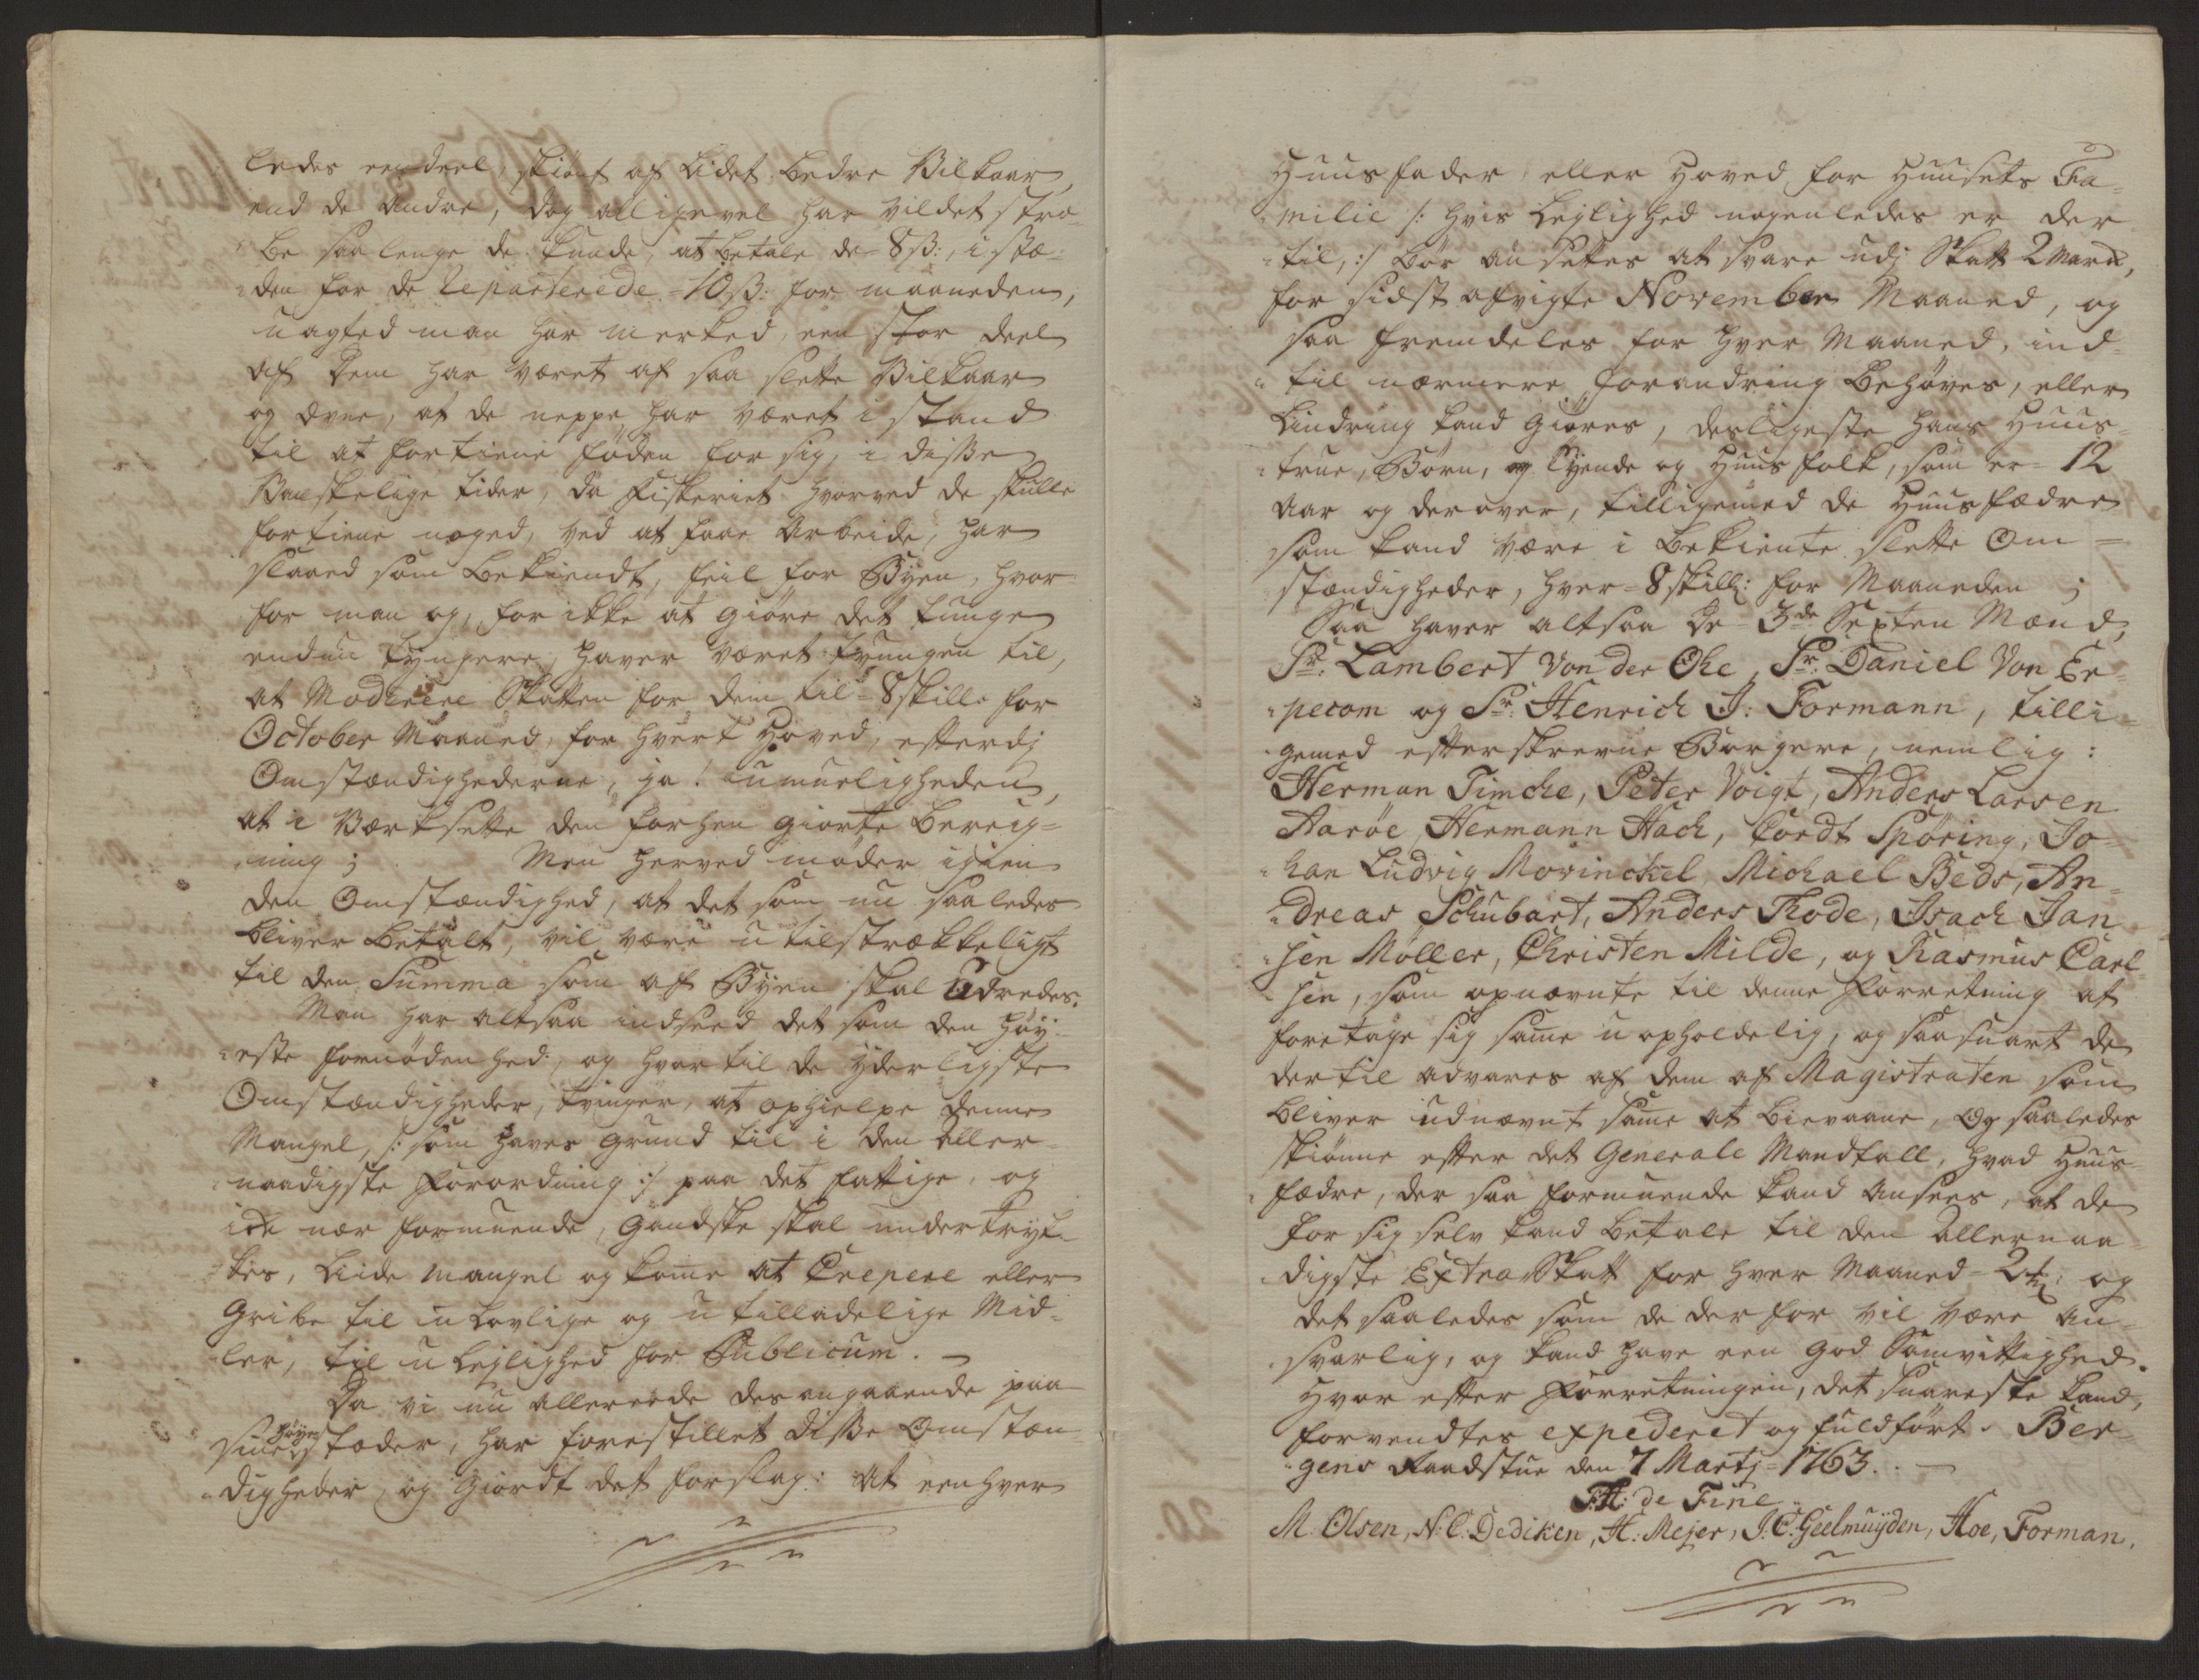 ledes een deel, skiønt af Lidet bedre Vilkaar,
end de andre, dog alligevel har vildet stræ-
be saa lenge de kunde, at betale de 8 ß:, i stæ-
den for de Reparterede 10 ß: for maaneden,
uagted man har merked, een stor deel
af Dem har været af saa slette Vilkaar
og Evne, at de neppe har været i stand
til at fortiene føden for sig, i disse
Vanskelige tider, da Fiskeriet hvorved de skulle
fortiene noged, ved at faae Arbeide, har
slaaed som bekiendt, feil for Byen, hvor-
for man og, for ikke at giøre det tunge
endnu tyngere, haver været tvungen til,
at Moderere Skatten for dem til 8 skill: for
October Maaned, for hvert Hoved, efterdj
Omstændighederne, ja! uumueligheden,
at i Værksette den forhen giorte bereig-
ning; Men herved møder igien
den Omstændighed, at det som nu saaledes
bliver betalt, vil være utilstrækkeligt
til den Summa som af Byen skal Udredes.
Man har altsaa indseed det som den høy-
este fornødenhed, og hvortil de yderligste
Omstændigheder, tvinger, at ophielpe denne
Mangel, /: som haves grund til i den aller-
naadigste Forordning :/ paa det fattige, og
icke nær formuende, gandske skal undertryk-
kes, Liide mangel og kome at Crepere eller
Gribe til u Lovlige og utilladelige Mid-
ler, til u Lejlighed for Publicum.
Da vi nu allerede des angaaende paa
høye
stæder, har forestillet disse Omstæn-
digheder, og giordt det forslag: At eenhver
Huusfader eller Hoved for Huusets Fa-
milie /: hvis Lejlighed nogenledes er der
til, :/ bør ansettes at svare udj Skatt 2 Marck,
for sidst afvigte November Maaned, og
saa fremdeles for hver Maaned, ind-
til nærmere forandring behøves, eller
Lindring kand giøres, desligeste hans Huus-
true, Børn, og Tyende og Huusfolk, som er 12
aar og derover, tilligemed de Huusfædre
som kand være i bekiente slette Om-
stændigheder, hver 8 skill: for Maaneden;
Saa haver altsaa de 3de Sexten Mænd,
Sr: Lambert Von der Ohe, Sr: Daniel Von Er-
pecom og Sr: Henrich J: Formann, tilli-
gemed efterskrevne Borgere, nemlig:
Herman Timche, Peter Voigt, Anders Larsen
Aarøe, Hermann Hach, Cordt Spøring, Jo-
han Ludvig Mowinckel Michael Beds, An-
dreas Schubart, Anders Rode, Isach Jan-
sen Møller, Christen Milde, og Rasmus Carl-
sen, som opnævnte til denne Forretning at
foretage sig same uopholdelig, og saa snart de
dertil advares af dem af Magistraten som
bliver udnævnt same at bievaane, Og saaledes
skiønne efter det Generale Mandtall, hvad Huus-
fædre, der saa formuende kand ansees, at de
for sig selv kand betale til den allernaa-
digste Extra Skatt for hver Maaned 2 ꝟ, og
det saaledes som de derfor vil være an-
svarlig, og kand have een god Samvittighed.
Hvorefter Forretningen, det snareste kand,
forvendtes expederet og fuldført. Ber-
gens Raadstue den 7 Martj 1763.
F: H: de Fine
M. Olsen, N: C. Dediken, H: Mejer, J. C. Geelmuyden, Hoe, Forman.